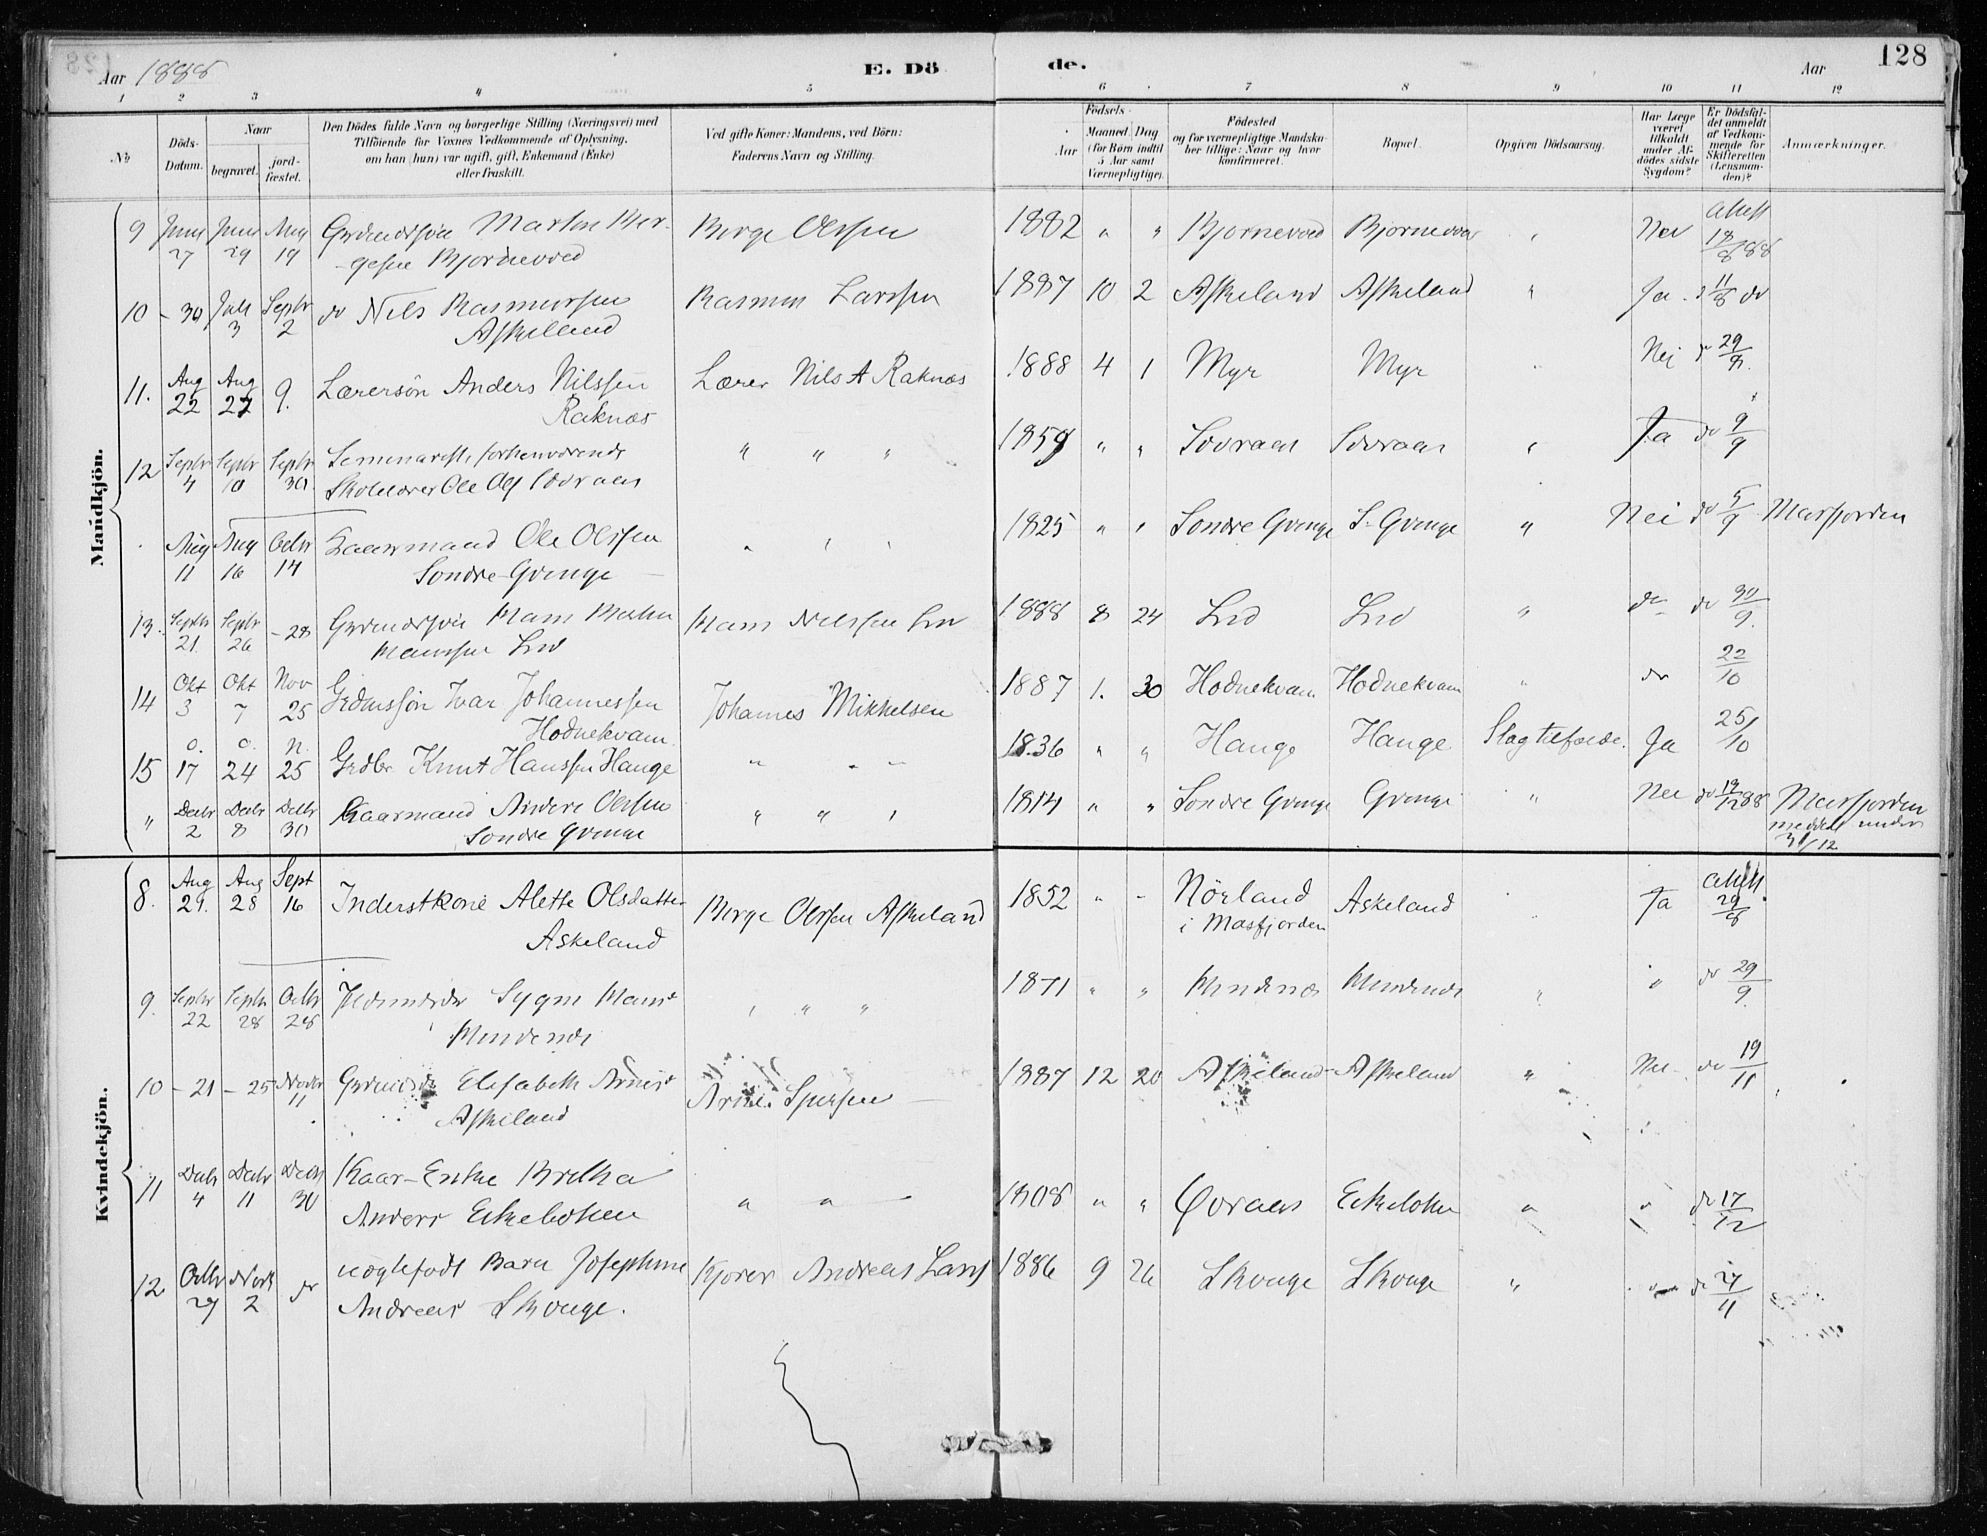 128
Aar 1888
E. Döde.
Aar
1 2 3 4 5 6 7 8 9 10 11 12
No
Döds-Datum.
Naar
begravet.
jord-fæstet.
Den Dödes fulde Navn og borgerlige Stilling (Næringsvei) med
Tilföiende for Voxnes Vedkommende af Oplysning,
om han (hun) var ugift, gift, Enkemand (Enke)
eller fraskilt.
Ved gifte Koner: Mandens, ved Börn:
Faderens Navn og Stilling.
Födsels-
Aar
Maaned. Dag
(for Börn indtil
5 Aar samt
Værnepligtige).
Födested
og for værnepligtige Mandska-
ber tillige: Naar og hvor
konfirmeret.
Bopæl.
Opgiven Dödsaarsag.
Har Læge
været
tilkaldt
under Af-
dödes sidste
Sygdom?
Er Dödsfal-
det anmeldt
af Vedkom-
mende for
Skifteretten
(Lensman-
den)?
Anmærkninger.
Mandkjön.
9 Juni 27 Juni 29 Aug 19 Grdmdssön Martin Ber-
gesen Bjornevoed Berge Olssen 1882 " " Bjornevoed Bjornevoed Nei Attest 18/8 88
10 - 30 Juli 3 Septbr 2 do Nils Rasmussen
Askeland Rasmus Larssen 1887 10 2 Askeland Askeland " Ja 11/8 do
11. Aug 22 Aug 27 9. Lærersön Anders Nilssen
Raknæs Lærer Nils A Raknæs 1888 4 1 Myr Myr Nei do 29/8.
12 Septbr 4 Septbr 10 Septbr 30 Seminarist, forhenværende
Skolelærer Ole Ols Sovraas " " " 1859 " " Sovraas Sovraas " Ja do 9/9
Aug 11 Aug 16 Octbr 14 Kaarmand Ole Olssen
Sondre-Qvinge 1825 " " Sondre Qvinge S. Qvinge " Nei do 5/9 Masfjorden
13. Septbr 21. Septbr 26 - 28 Grdmdssön Mons Martin
Monssen Lid Mons Nilssen Lid 1888 8 24 Lid Lid " do do 30/9.
14 Okt 3 Okt 7 Nov 25 Grdmssön Ivar Johannessen
Hodnekvam Johannes Mikkelsen 1887 1. 30 Hodnekvam Hodnekvam do 22/10
15 o. 17 o. 24 n. 25 Grdbr Knut Hanssen Hauge " " " 1836 " " Hauge Hauge Slagtilfælde. Ja 25/10
" Decbr 2 Decbr 8 Decbr 30 Kaarmand Anders Olssen
Sondre Qvinge " " " 1814 " " Sondre Qvinge Qvinge " Nei do 12/12 88 Masfjorden
meddel under
31/12
Kvindekjön.
8. Aug 21. Aug 28 Sept 16 Inderstkone Alette Olsdatter
Askeland Berge Olssen Askeland 1852 " - Nörland
i Masfjorden Askeland Ja Attest 29/8
9. Septbr 22 Septbr 28 Octbr 28 Sygni Mons 1871 " " " do 29/9.
10 - 21 - 25 Novbr 11 Elisabeth Arnes
Askeland Arne 1887 12 20 Askeland Askeland " Nei do 19/11
11 Decbr 4 Decbr 11 Decbr 30 Kaar-Enke Britha
Anders " " 1808 " " " " do 17/12
12 Octbr 27 Novb 2 uægtefödt Barn Josephine
Andreas Skouge. Andreas 1886 9 26 Skouge Skouge " do 27/11